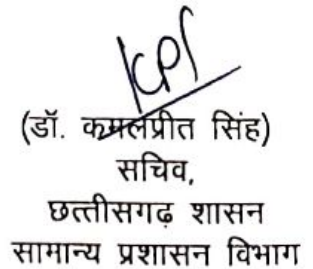 (डॉ. कमलप्रीत सिंह)
सचिव,
छत्तीसगढ़ शासन
सामान्य प्रशासन विभाग